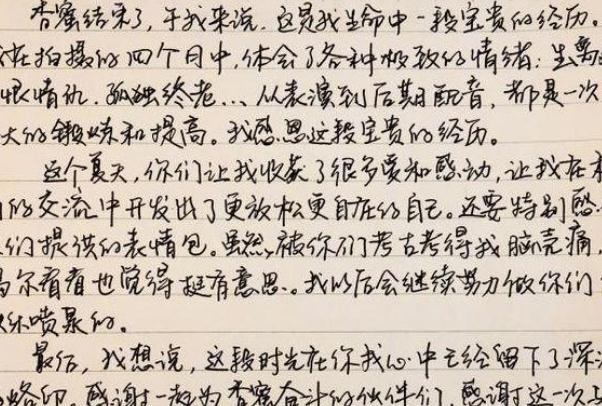 香蜜结束了，于我来说，这是我生命中一段宝贵的经历。
在拍摄的四个月中，体会了各种极致的情绪：生离
恨情仇、孤独终老…从表演到后期配音，都是一次
大的锻炼和提高。我感恩这段宝贵的经历。
这个夏天，你们让我收获了很多爱和感动，让我在
的交流中开发出了更放松更自在的自己。还要特别感
们提供的表情包。虽然被你们考古考得我脑壳痛，
尔看看也觉得挺有意思。我以后会继续努力做你们
喷泉的。
最后，我想说，这段时光在你我心中已经留下了深
烙印。感谢一起为香蜜奋斗的伙伴们，感谢这一次